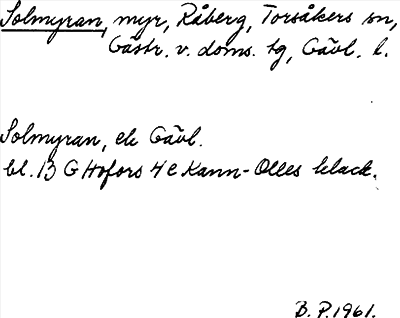 Solmyran, myr, Råberg, Torsåkers sn,
Gästr. v. doms. tg, Gävl. l.
Solmyran, ek Gävl.
bl. 13 G Hofors 4 e Kann-Olles klack.
B. P. 1961.